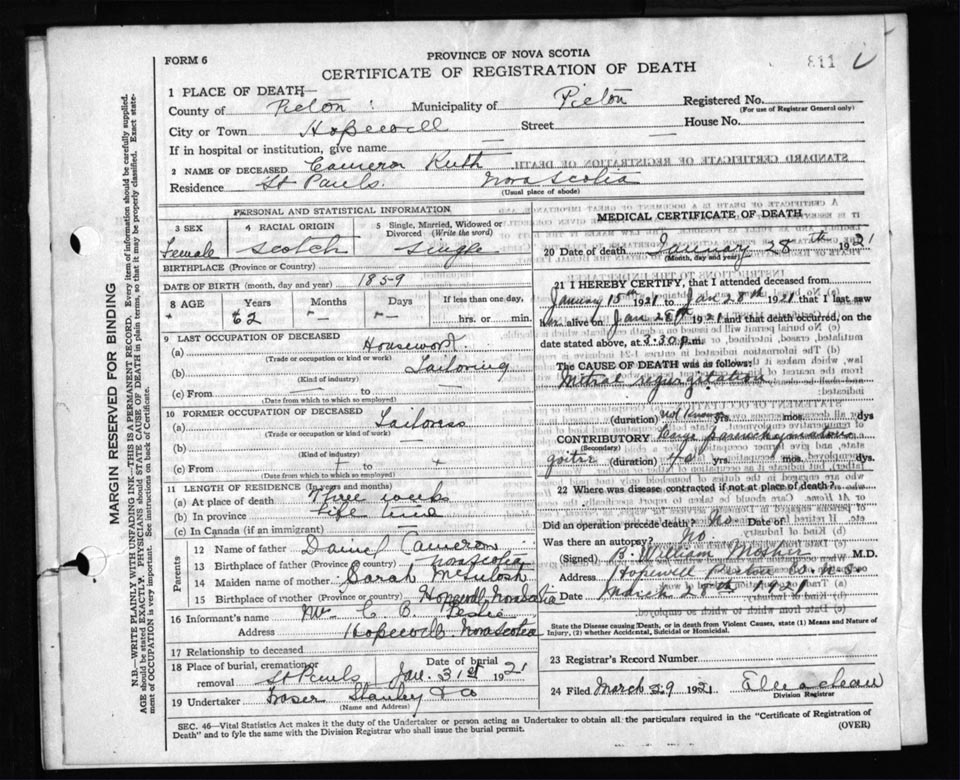 FORM 6
PROVINCE OF NOVA SCOTIA
CERTIFICATE OF REGISTRATION OF DEATH
311
1 PLACE OF DEATH—
County of Pictou Municipality of Pictou Registered No.
(For use of Registrar General only)
City or Town Hopewell Street — House No.
If in hospital or institution, give name —
2 NAME OF DECEASED Cameron Ruth
Residence St Pauls. Nova Scotia
(Usual place of abode)
PERSONAL AND STATISTICAL INFORMATION
3 SEX 4 RACIAL ORIGIN 5 Single, Married, Widowed or Divorced (Write the word)
Female Scotch Single
BIRTHPLACE (Province or Country)
DATE OF BIRTH (month, day and year) 1859
8 AGE Years Months Days If less than one day,
62 — — hrs. or min.
9 LAST OCCUPATION OF DECEASED
(a) Housework
(Trade or occupation or kind of work)
(b) Tailoring
(Kind of industry)
(c) From — to —
(Date from which to which so employed)
10 FORMER OCCUPATION OF DECEASED
(a) Tailoress
(Trade or occupation or kind of work)
(b)
(Kind of industry)
(c) From + to +
(Date from which to which so employed)
11 LENGTH OF RESIDENCE (In years and months)
(a) At place of death Three weeks
(b) In province Life time
(c) In Canada (if an immigrant) —
Parents
12 Name of father Daniel Cameron
13 Birthplace of father (Province or Country) Nova Scotia
14 Maiden name of mother Sarah McIntosh
15 Birthplace of mother (Province or Country) Hopewell, Nova Scotia
16 Informant's name Mrs C. B. Leslie
Address Hopewell Nova Scotia
17 Relationship to deceased
18 Place of burial, cremation or removal St Pauls Date of burial Jan. 31st 1921
19 Undertaker Fraser Stanley & Co
(Name and Address)
MEDICAL CERTIFICATE OF DEATH
20 Date of death January 28th 1921
(Month, day and year)
21 I HEREBY CERTIFY, that I attended deceased from
January 15th 1921 to Jan 28th 1921 that I last saw
her alive on Jan 28th 1921 and that death occurred, on the
date stated above, at 3.30 p.m.
The CAUSE OF DEATH was as follows:
Mitral regurgitation
(duration) not known yrs. mos. dys
CONTRIBUTORY Large parenchymatous
(Secondary)
goitre (duration) yrs. mos. dys.
22 Where was disease contracted if not at place of death?
Did an operation precede death? No Date of
Was there an autopsy? No.
(Signed) B. William Mosher M.D.
Address Hopewell Pictou Co. N.S.
Date March 28th 1921
State the Disease causing Death, or in death from Violent Causes, state (1) Means and Nature of Injury, (2) whether Accidental, Suicidal or Homicidal.
23 Registrar's Record Number
24 Filed March 29 1921
Division Registrar
SEC. 46—Vital Statistics Act makes it the duty of the Undertaker or person acting as Undertaker to obtain all the particulars required in the "Certificate of Registration of
Death" and to fyle the same with the Division Registrar who shall issue the burial permit. (OVER)
MARGIN RESERVED FOR BINDING
N.B.—WRITE PLAINLY WITH UNFADING INK—THIS IS A PERMANENT RECORD. Every item of information should be carefully supplied.
AGE should be stated EXACTLY. PHYSICIANS should STATE CAUSE OF DEATH in plain terms, so that it may be properly classified. Exact statement of OCCUPATION is very important. See instructions on back of Certificate.